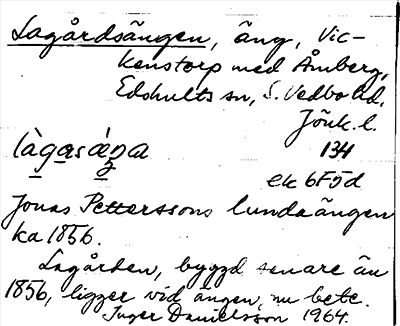 Lagårdsängen, äng, Vic-
kenstorp med Åmberg,
Edshults sn, S. Vedbo hd.
Jönk. l.
134
ek 6F5d
Jonas Petterssons lundaängen
ka 1856.
Lagården, byggd senare än
1856, ligger vid ängen, nu bete.
Inger Danielsson 1964.